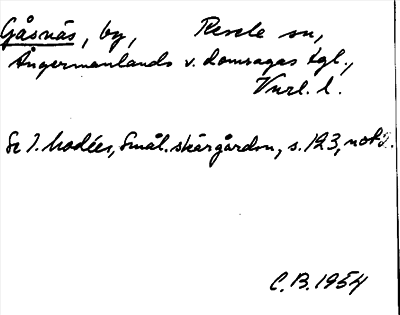 Gåsnäs, by, Resele sn,
Ångermanlands v. domsagas tgl.,
Vnrl. l.
Se I. Modéer, Smål. skärgården, s. 123, not 3.
C.B. 1954